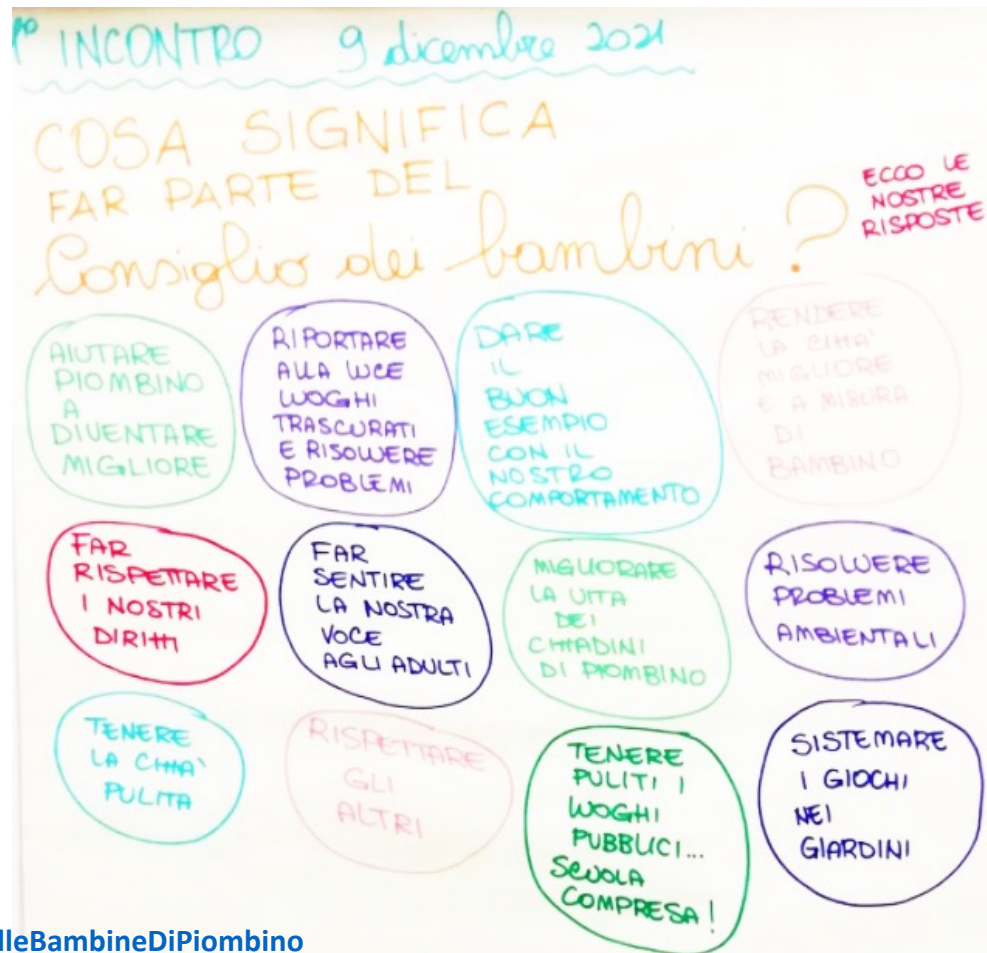 1° INCONTRO 9 dicembre 2021
COSA SIGNIFICA
FAR PARTE DEL
Consiglio dei bambini ?
ECCO LE
NOSTRE
RISPOSTE
AIUTARE
PIOMBINO
A
DIVENTARE
MIGLIORE
RIPORTARE
ALLA LUCE
LUOGHI
TRASCURATI
E RISOLVERE
PROBLEMI
DARE
IL
BUON
ESEMPIO
CON IL
NOSTRO
COMPORTAMENTO
RENDERE
LA CITTA'
MIGLIORE
E A MISURA
DI
BAMBINO
FAR
RISPETTARE
I NOSTRI
DIRITTI
FAR
SENTIRE
LA NOSTRA
VOCE
AGLI ADULTI
MIGLIORARE
LA VITA
DEI
CITTADINI
DI PIOMBINO
RISOLVERE
PROBLEMI
AMBIENTALI
TENERE
LA CITTA'
PULITA
RISPETTARE
GLI
ALTRI
TENERE
PULITI I
LUOGHI
PUBBLICI...
SCUOLA
COMPRESA!
SISTEMARE
I GIOCHI
NEI
GIARDINI
lleBambineDiPiombino